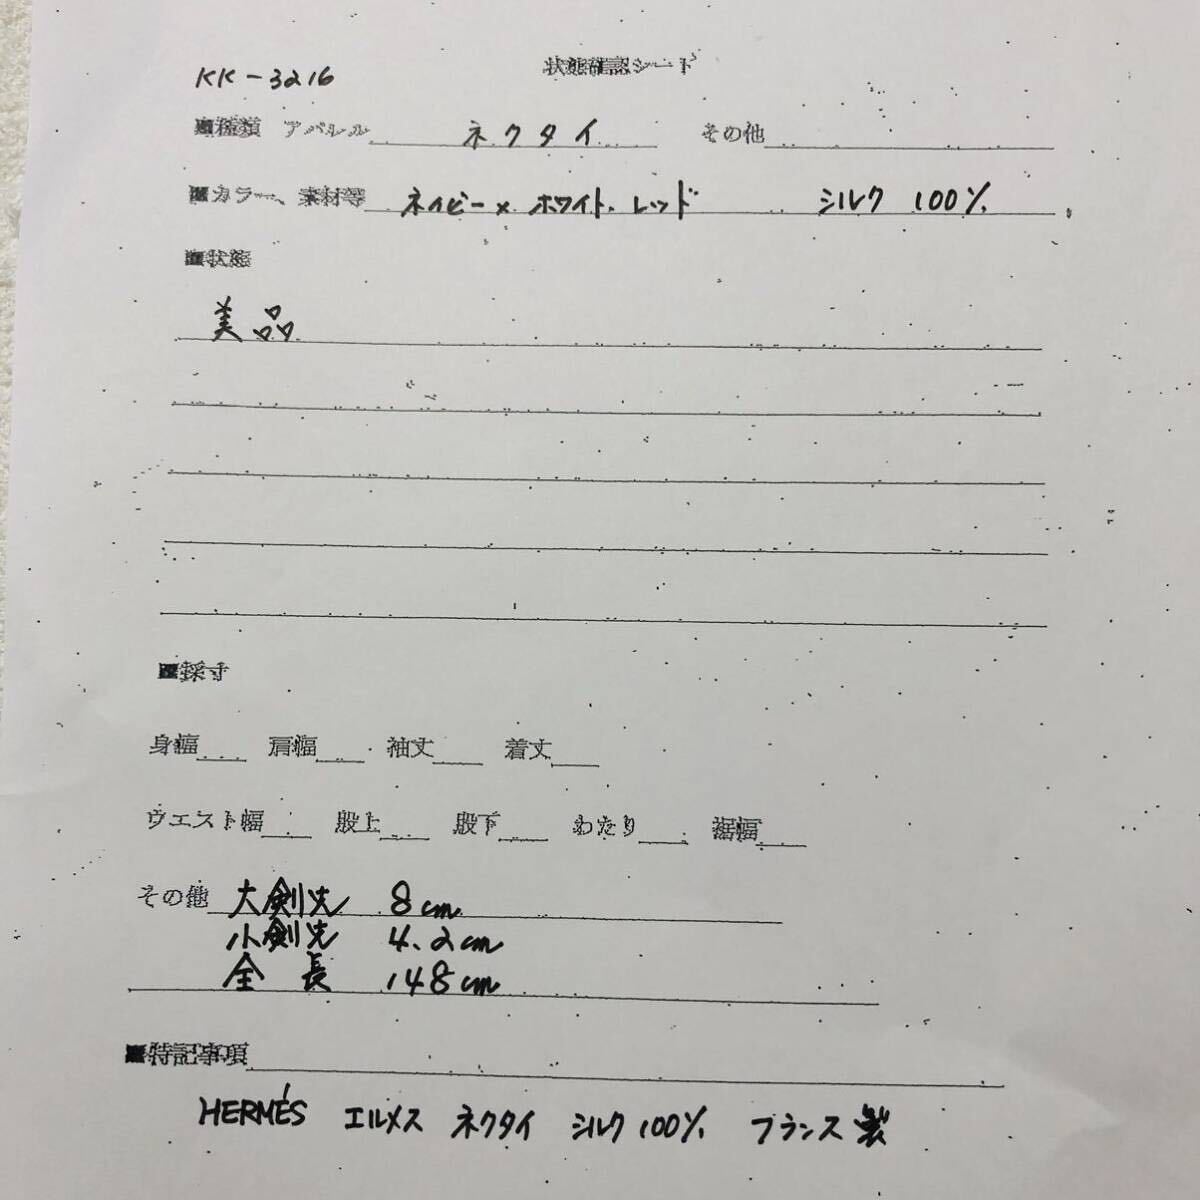 状態確認シート
KK-3216
■種類 アパレル ネクタイ その他
■カラー、素材等 ネイビー×ホワイト・レッド シルク 100%
■状態
美品
■採寸
身幅 肩幅 袖丈 着丈
ウエスト幅 股上 股下 わたり 裾幅
その他 大剣先 8cm
小剣先 4.2cm
全長 148cm
■特記事項
HERMÉS エルメス ネクタイ シルク100% フランス製